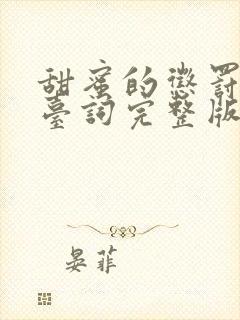 甜蜜的懲罰
臺詞完整版
晏菲